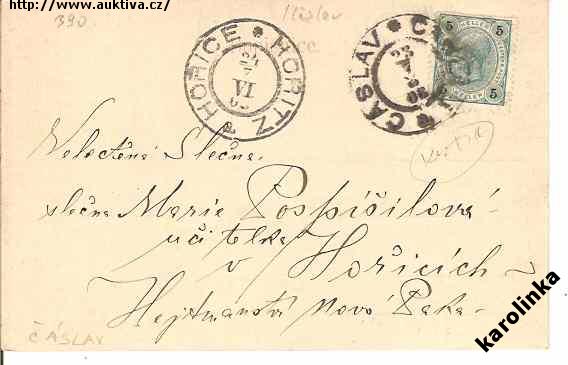 http://www.auktiva.cz/
390
HOŘICE * HORITZ
VI
ČÁSLAV
5 HELLER 5
5 HELLER 5
Veloctěná Slečna
slečna Marie Pospíšilová
učitelka
v Hořicích
Hejtmanství Nová Paka
ČÁSLAV
karolinka